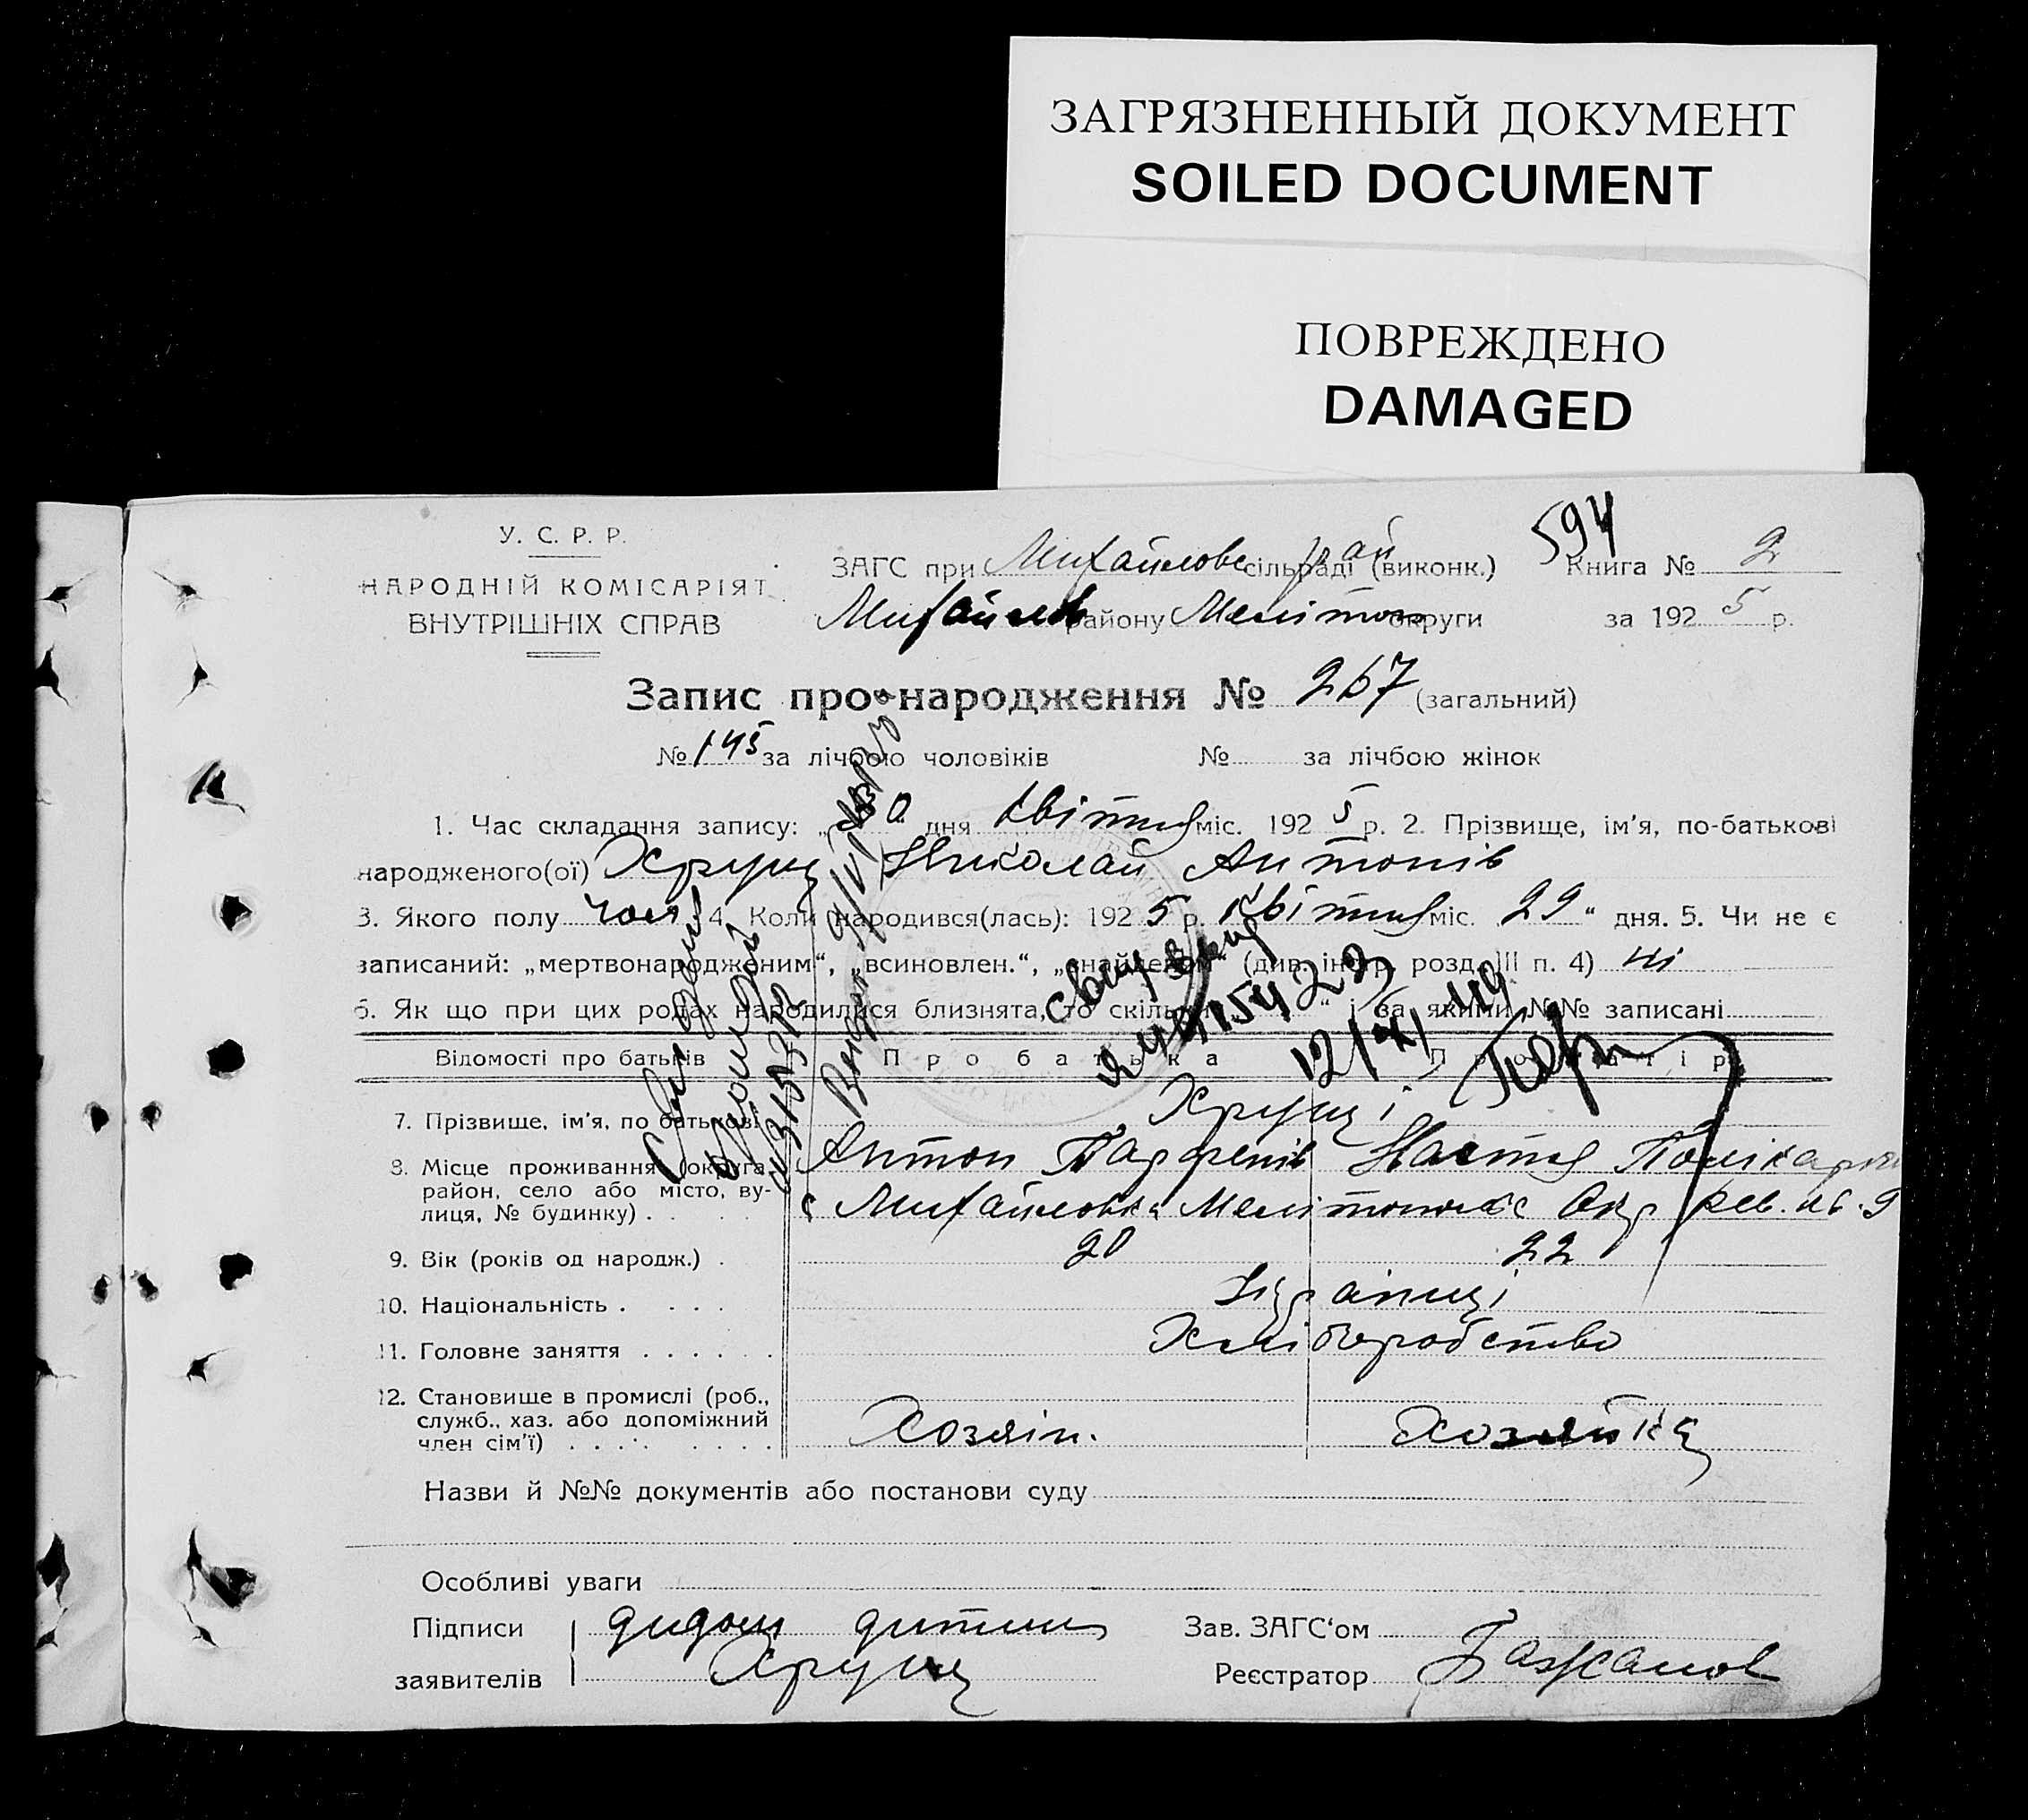 ЗАГРЯЗНЕННЫЙ ДОКУМЕНТ
SOILED DOCUMENT
ПОВРЕЖДЕНО
DAMAGED
594
У. С. Р. Р.
НАРОДНІЙ КОМІСАРІЯТ
ВНУТРІШНІХ СПРАВ
ЗАГС при Михайловс сільраді рай (виконк.) Книга № 2
Михайлов району Мелітоп округи за 1925 р.
Запис про народження № 267 (загальний)
№ 145 за лічбою чоловіків № за лічбою жінок
1. Час складання запису: „30“ дня Квітня міс. 1925 р. 2. Прізвище, ім’я, по-батькові
народженого(ої) Хрущ Николай Антонів
3. Якого полу чол 4. Коли народився(лась): 1925 р. Квітня міс. 29“ дня. 5. Чи не є
записаний: „мертвонародженим“, „всиновлен.“, „знайденим“ (див. інстр. розд. III п. 4) ні
6. Як що при цих родах народилися близнята, то скільки “ і за якими №№ записані
Відомості про батьків Про батька Про матір
7. Прізвище, ім’я, по батькові Хрущі
Антон Парфенів Настя Полікарп
8. Місце проживання (округа, район, село або місто, вулиця, № будинку) с Михайловка Мелітопольс Окр
9. Вік (років од народж.) 20 22
10. Національність Українці
11. Головне заняття Хліборобство
12. Становище в промислі (роб.,
служб., хаз. або допоміжний
член сім’ї) Хозяін. Хозяйка
Назви й №№ документів або постанови суду
Особливі уваги
Підписи дидом дитини Зав. ЗАГС‘ом
заявителів Хрущ Реєстратор Бажанов